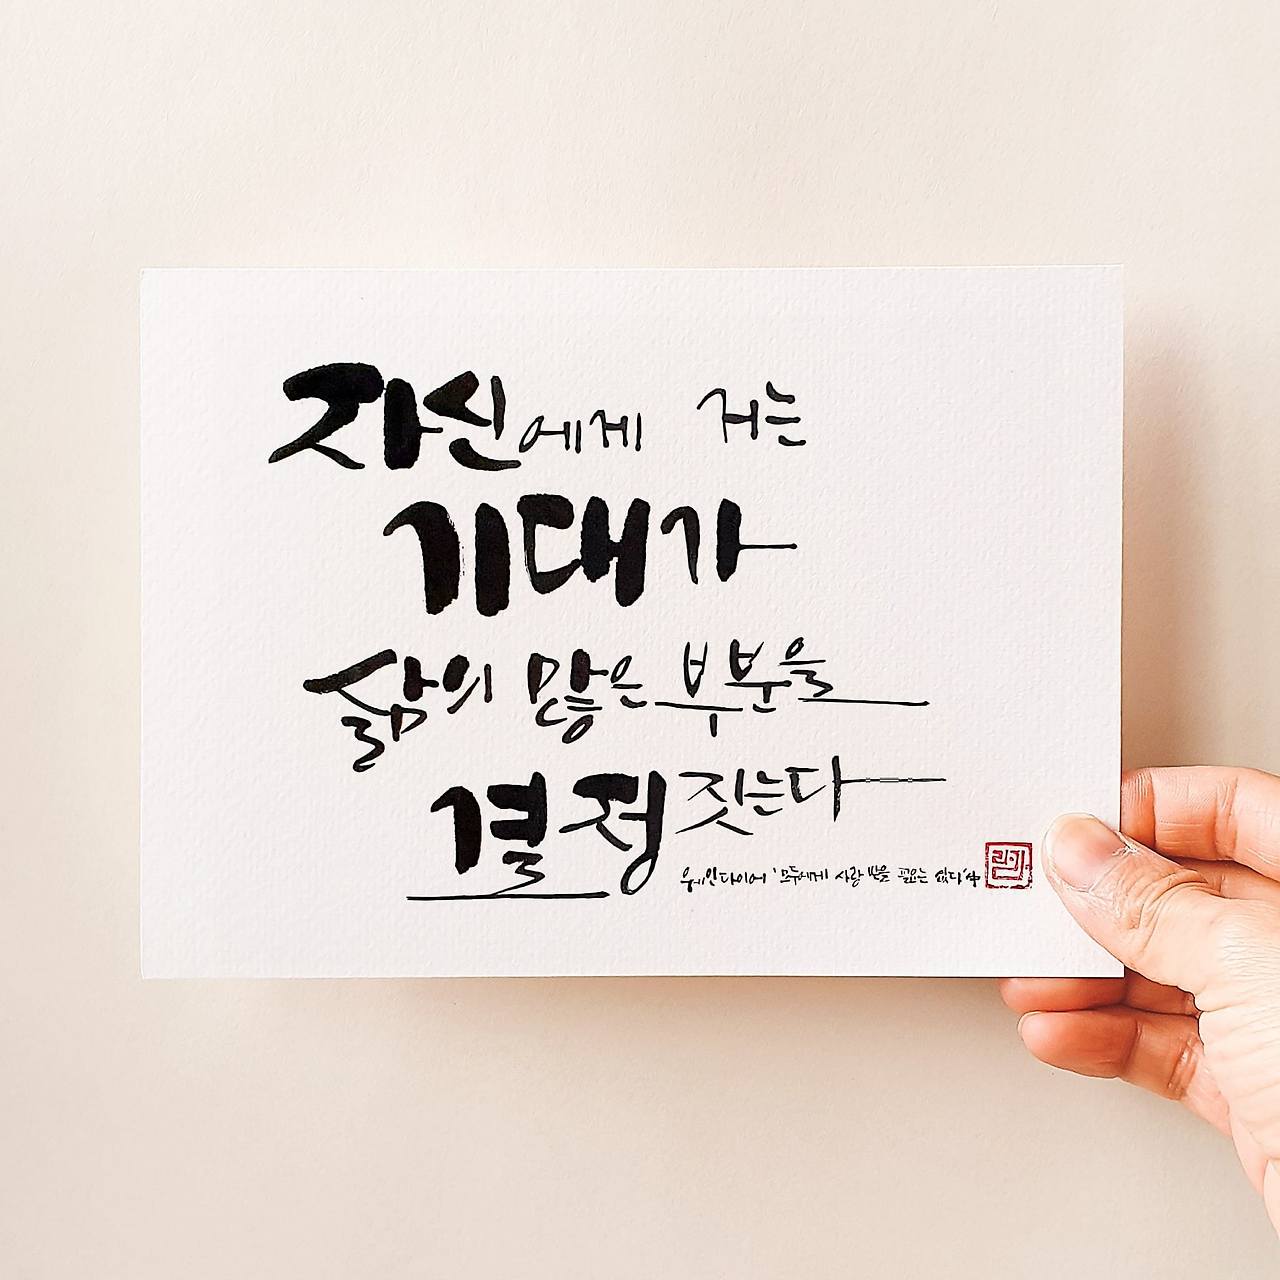 자신에게 거는
기대가
삶의 많은 부분을
결정짓는다
웨인다이어 '모두에게 사랑 받을 필요는 없다' 中